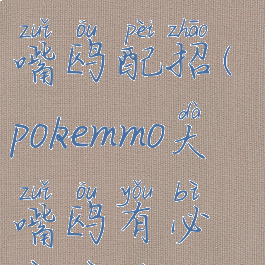 zuǐ ōu pèi zhāo
嘴鸥配招(
dà
pokemmo大
zuǐ ōu yǒu bì
嘴鸥有必